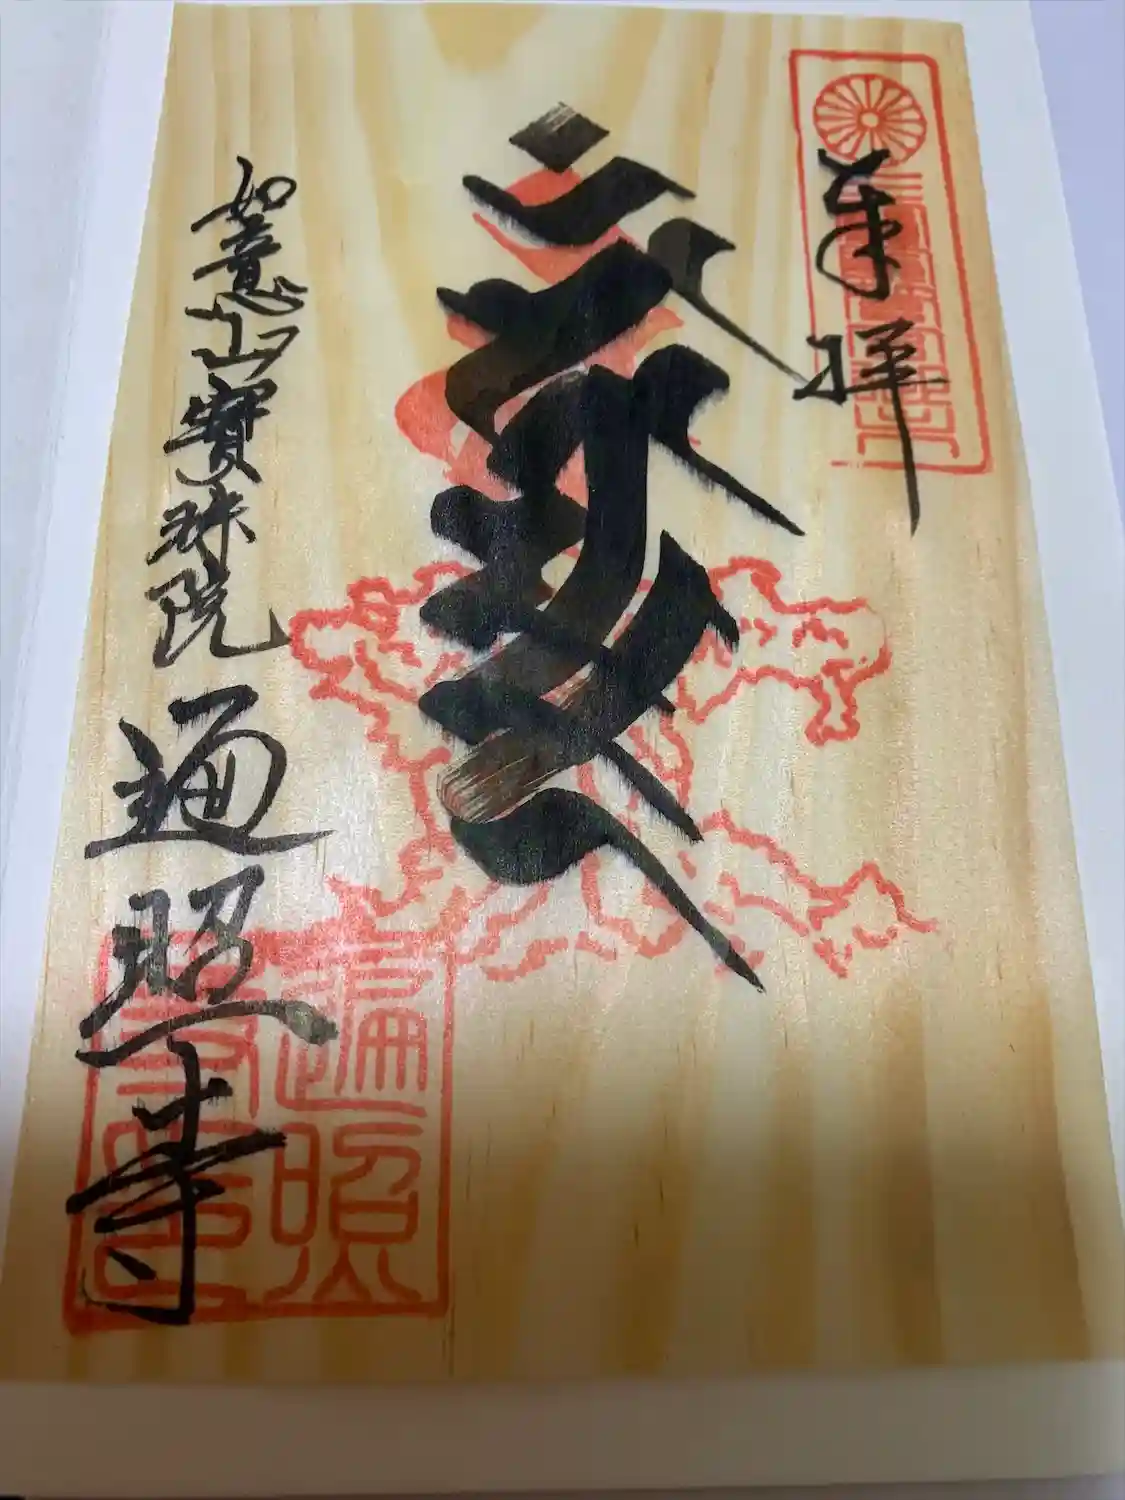 奉拝
如意山寶珠院
遍照寺
遍照寺印